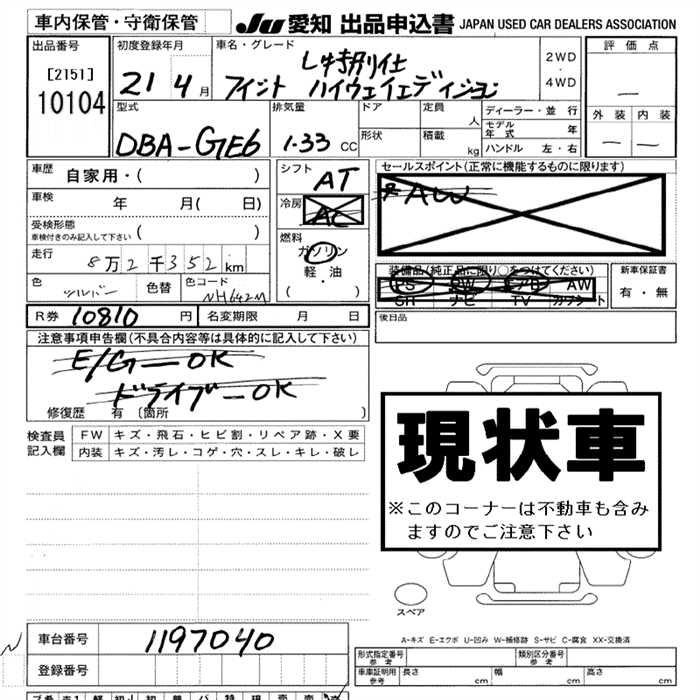 車内保管・守衛保管 JU 愛知 出品申込書 JAPAN USED CAR DEALERS ASSOCIATION
出品番号 初度登録年月 車名・グレード 2WD 評価点
[2151] 21 4 月 フィット ハイウェイエディション 4WD
10104
型式 排気量 ドア 定員 人 ディーラー・並行 外装 内装
DBA-GE6 1.33 CC 形状 積載 kg モデル年式 年
ハンドル 左・右
車歴 自家用・( ) シフト AT セールスポイント(正常に機能するものに限ります)
車検 年 月( 日) 冷房 AC AW
受検形態
車検付きのみ記入して下さい ( ) 燃料 ガソリン
走行 8万2千352km 軽・油 装備品(純正品に限り○をつけてください) 新車保証書
色 シルバー 色替 色コード NH642M ( ・ ) PS PW AB AW 有・無
SR ナビ TV カワシート
R券 10810 円 名変期限 月 日 後日品
注意事項申告欄(不具合内容等は具体的に記入して下さい)
E/G-OK
ドライブ-OK
修復歴 有 〔箇所 )
現状車
※このコーナーは不動車も含みますのでご注意下さい
検査員 FW キズ・飛石・ヒビ割・リペア跡・X要
記入欄 内装 キズ・汚レ・コゲ・穴・スレ・キレ・破レ
スペア
A-キズ E-エクボ U-凹み W-補修跡 S-サビ C-腐食 XX-交換済
車台番号 1197040
登録番号
形式指定番号 参考 類別区分番号 参考
車庫証明用 参考 長さ cm 幅 cm 高さ cm